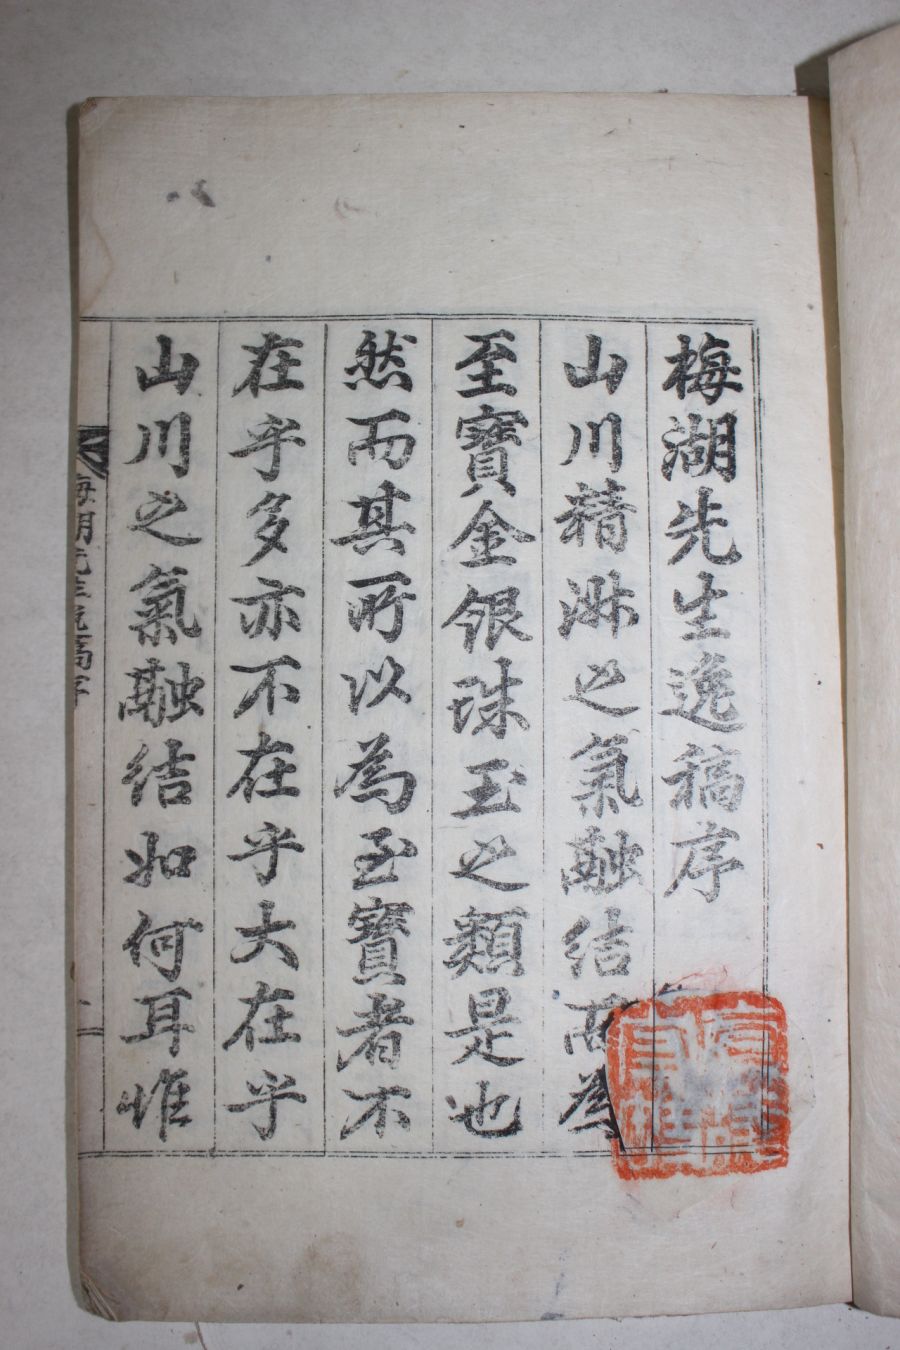 梅湖先生逸稿序
山川精淋之氣融結而為
至寶金銀珠玉之類是也
然而其所以為至寶者不
在乎多亦不在乎大在乎
山川之氣融結如何耳惟
梅湖先生逸稿序